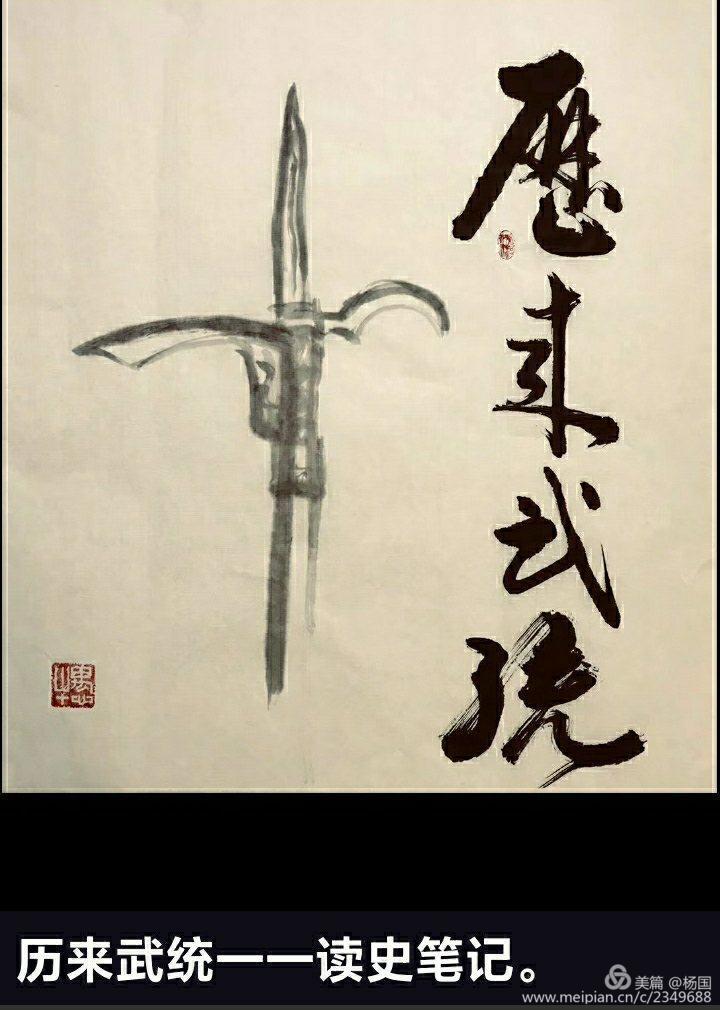 歷来武统
历来武统一一读史笔记。
美篇 @杨国
www.meipian.cn/c/2349688